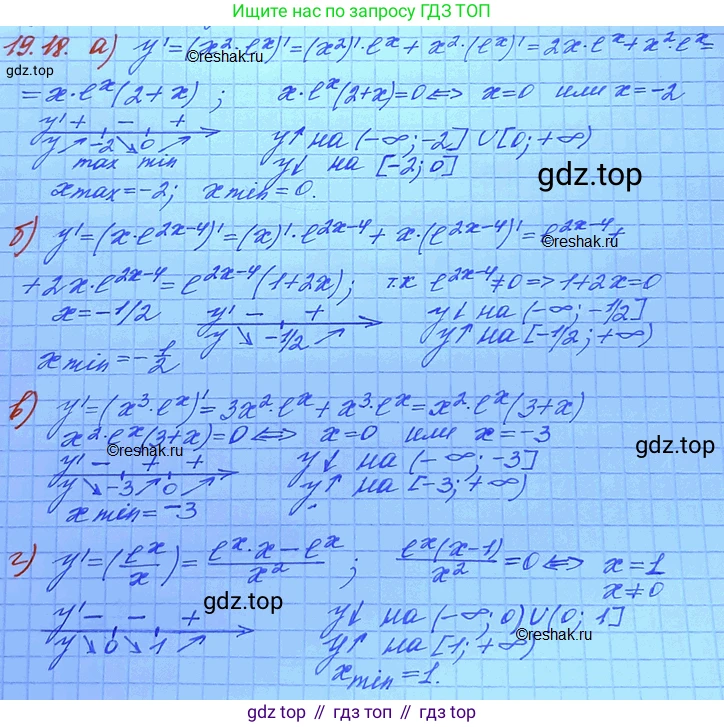 Ищите нас по запросу ГДЗ ТОП
19.18. а) y'=(x²·eˣ)'=(x²)'·eˣ+x²·(eˣ)'=2x·eˣ+x²·eˣ=
gdz.top
©reshak.ru
=x·eˣ(2+x) ; x·eˣ(2+x)=0 ⟺ x=0 или x=-2
y' + - +
y ↗ -2 ↘ 0 ↗
max min
y↑ на (-∞;-2] ∪ [0;+∞)
y↓ на [-2;0]
gdz.top
xmax=-2; xmin=0.
б) y'=(x·e²ˣ⁻⁴)'=(x)'·e²ˣ⁻⁴+x·(e²ˣ⁻⁴)'=e²ˣ⁻⁴+
©reshak.ru
+2x·e²ˣ⁻⁴=e²ˣ⁻⁴(1+2x); т.к e²ˣ⁻⁴≠0=>1+2x=0
x=-1/2
y' - +
y ↘ -1/2 ↗
y↓ на (-∞;-1/2]
y↑ на [-1/2;+∞)
xmin=-1/2
в) y'=(x³·eˣ)'=3x²·eˣ+x³·eˣ=x²·eˣ(3+x)
x²·eˣ(3+x)=0 ⟺ x=0 или x=-3
©reshak.ru
gdz.top
y' - + +
y ↘ -3 ↗ 0 ↗
y↓ на (-∞;-3]
y↑ на [-3;+∞)
xmin=-3
г) y'=(eˣ/x)=(eˣ·x-eˣ)/x² ; eˣ(x-1)/x²=0 ⟺ x=1
x≠0
gdz.top
y' - - +
y ↘ 0 ↘ 1 ↗
y↓ на (-∞;0)∪(0;1]
©reshak.ru
y↑ на [1;+∞)
xmin=1.
gdz.top // gdz.top // gdz.top